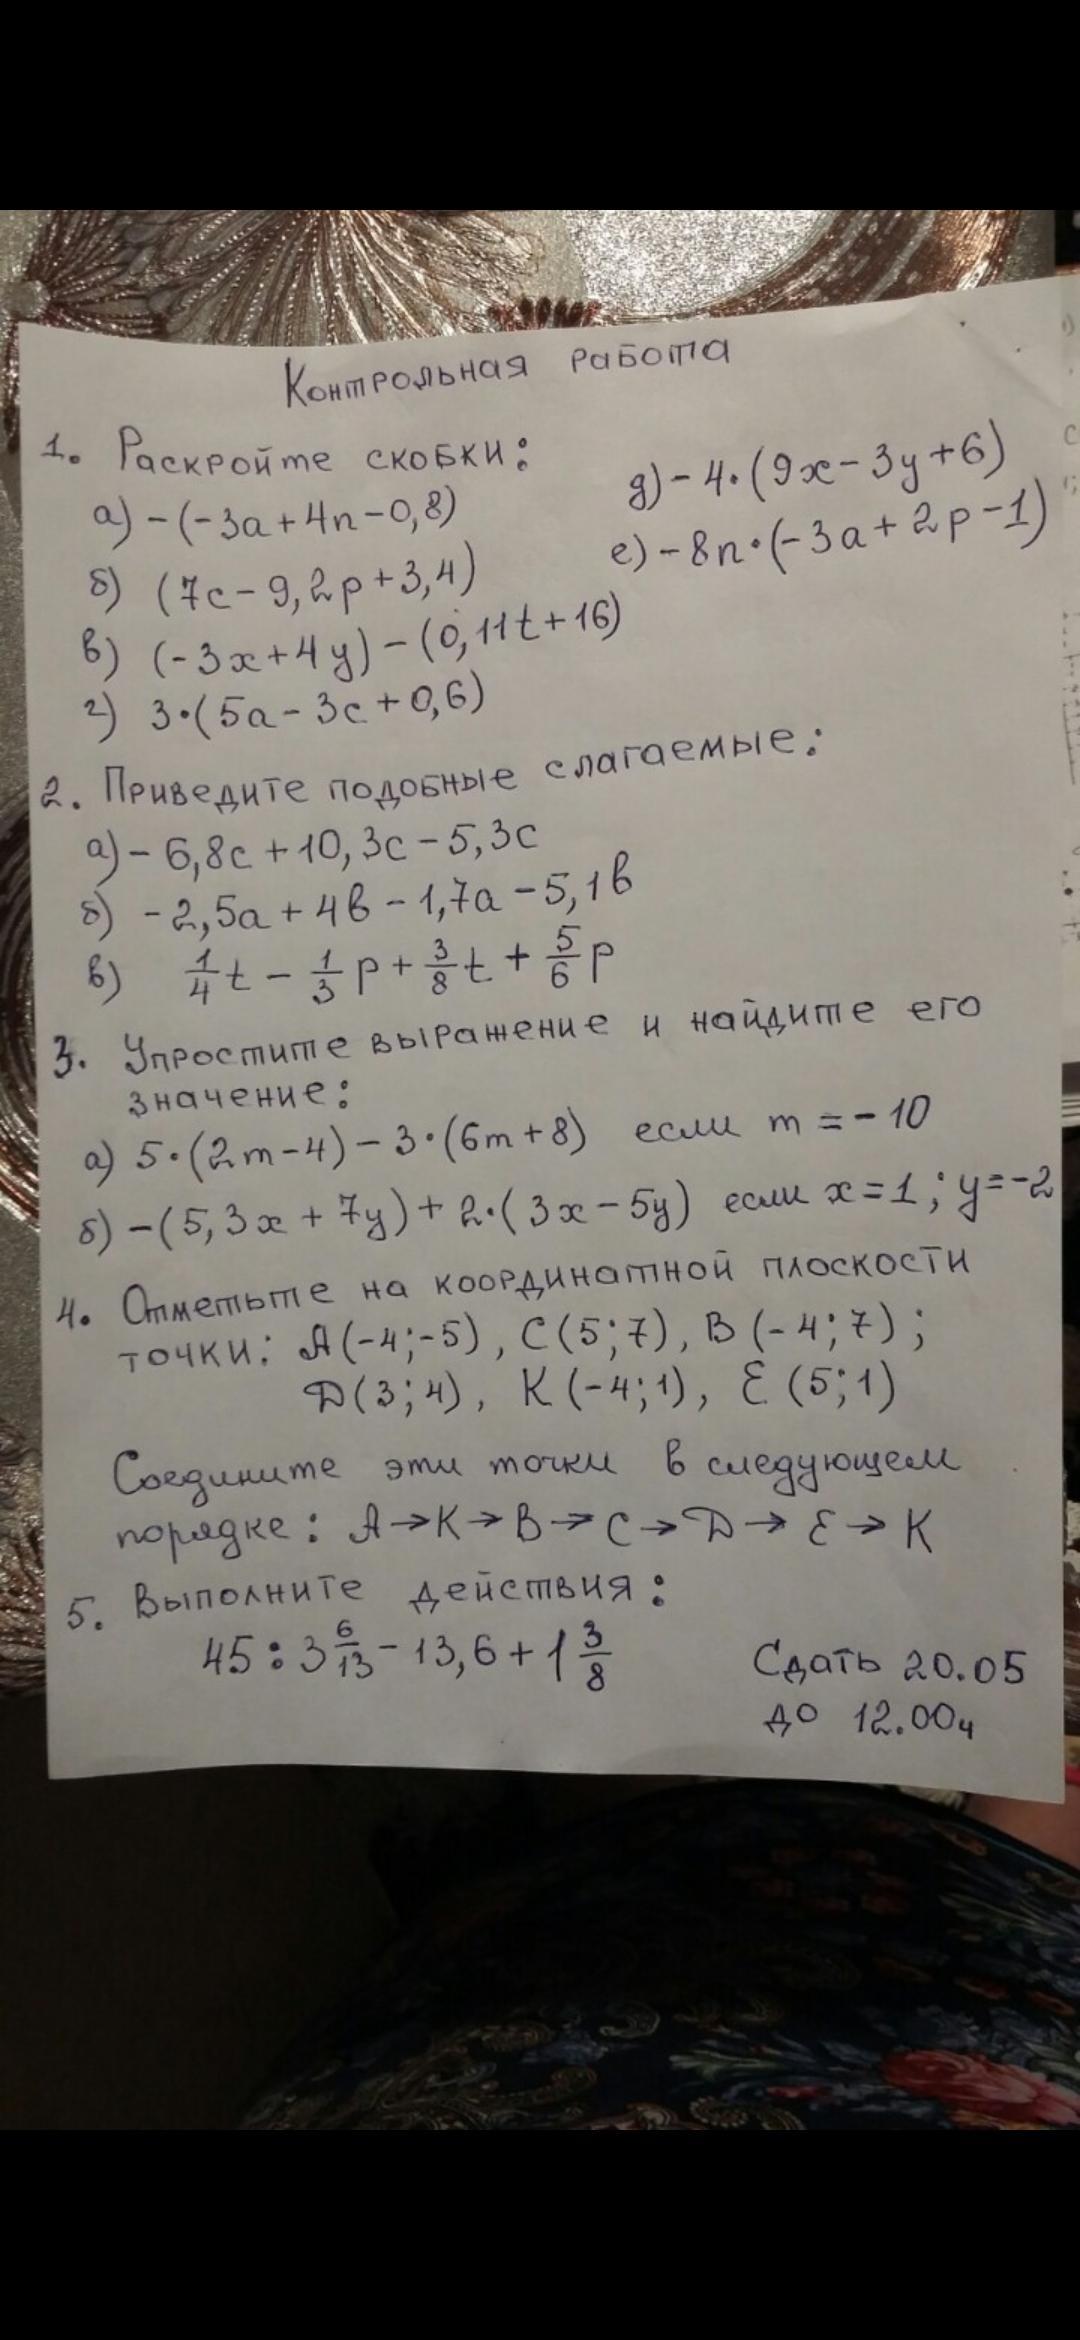 Контрольная работа
1. Раскройте скобки:
а) -(-3a+4n-0,8)
б) (7c-9,2p+3,4)
в) (-3x+4y)-(0,11t+16)
г) 3·(5a-3c+0,6)
д) -4·(9x-3y+6)
е) -8n·(-3a+2p-1)
2. Приведите подобные слагаемые:
а) -6,8c+10,3c-5,3c
б) -2,5a+4в-1,7a-5,1в
в) 1/4t - 1/3p + 3/8t + 5/6p
3. Упростите выражение и найдите его
значение:
а) 5·(2m-4)-3·(6m+8) если m=-10
б) -(5,3x+7y)+2·(3x-5y) если x=1; y=-2
4. Отметьте на координатной плоскости
точки: А(-4;-5), С(5;7), В(-4;7);
Д(3;4), К(-4;1), Е(5;1)
Соедините эти точки в следующем
порядке: А→К→В→С→Д→Е→К
5. Выполните действия:
45:3 6/13 - 13,6 + 1 3/8
Сдать 20.05
до 12.00ч